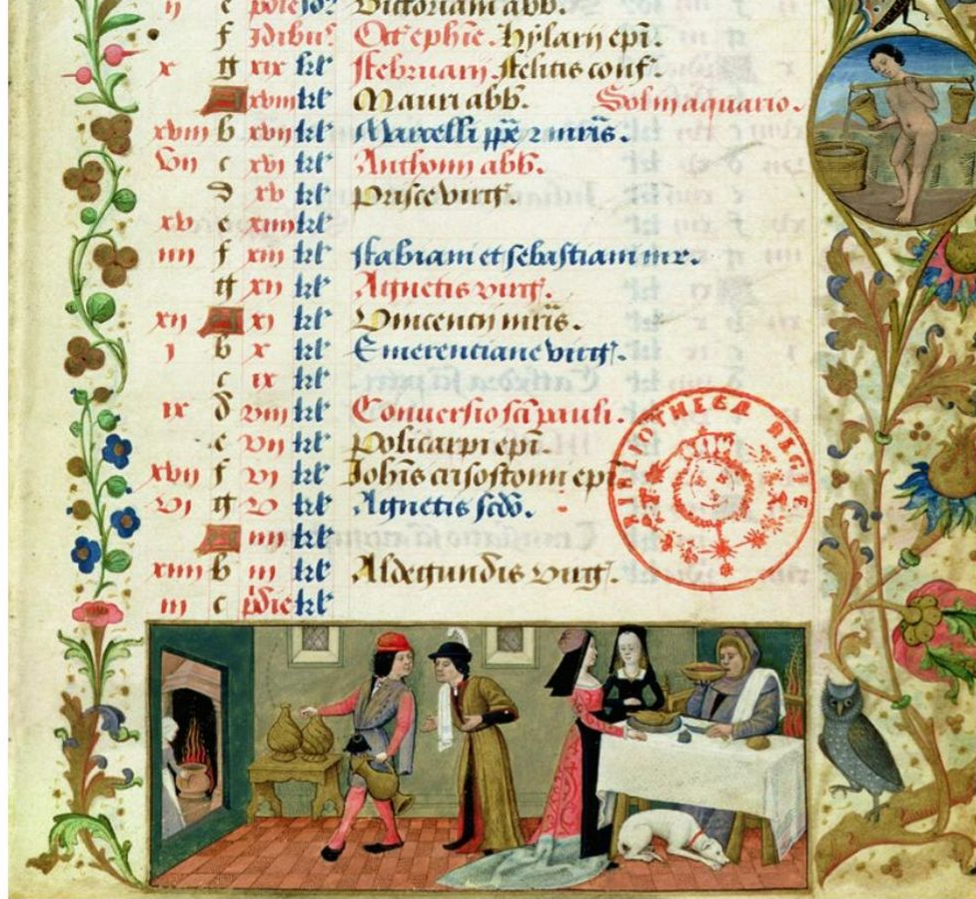 ij e pdie jd' Victoriani abb.
f Jdibus Oct' ephie. Hylarij epi.
x g xix kl' februarij. felicis conf.
xviij kl' Mauri abb. Sol in aquario.
xviij b xvij kl' Marcelli ppe 2 mris.
vij c xvi kl' Anthonij abb.
d xv kl' prisce virg.
xv e xiiij kl'
iiij f xiij kl' fabiani et sebastiani mr.
g xij kl' Agnetis virg.
xij xj kl' Vincentij mris.
j b x kl' Emerenciane virg.
c ix kl'
ix d viij kl' Conversio sci pauli.
e vij kl' policarpi epi.
xvij f vi kl' Johis crisostomi epi
vi g v kl' Agnetis scdo.
iiij kl'
xiiij b iij kl' Aldegundis virg.
iij c pdie kl'
BIBLIOTHECÆ REGIÆ